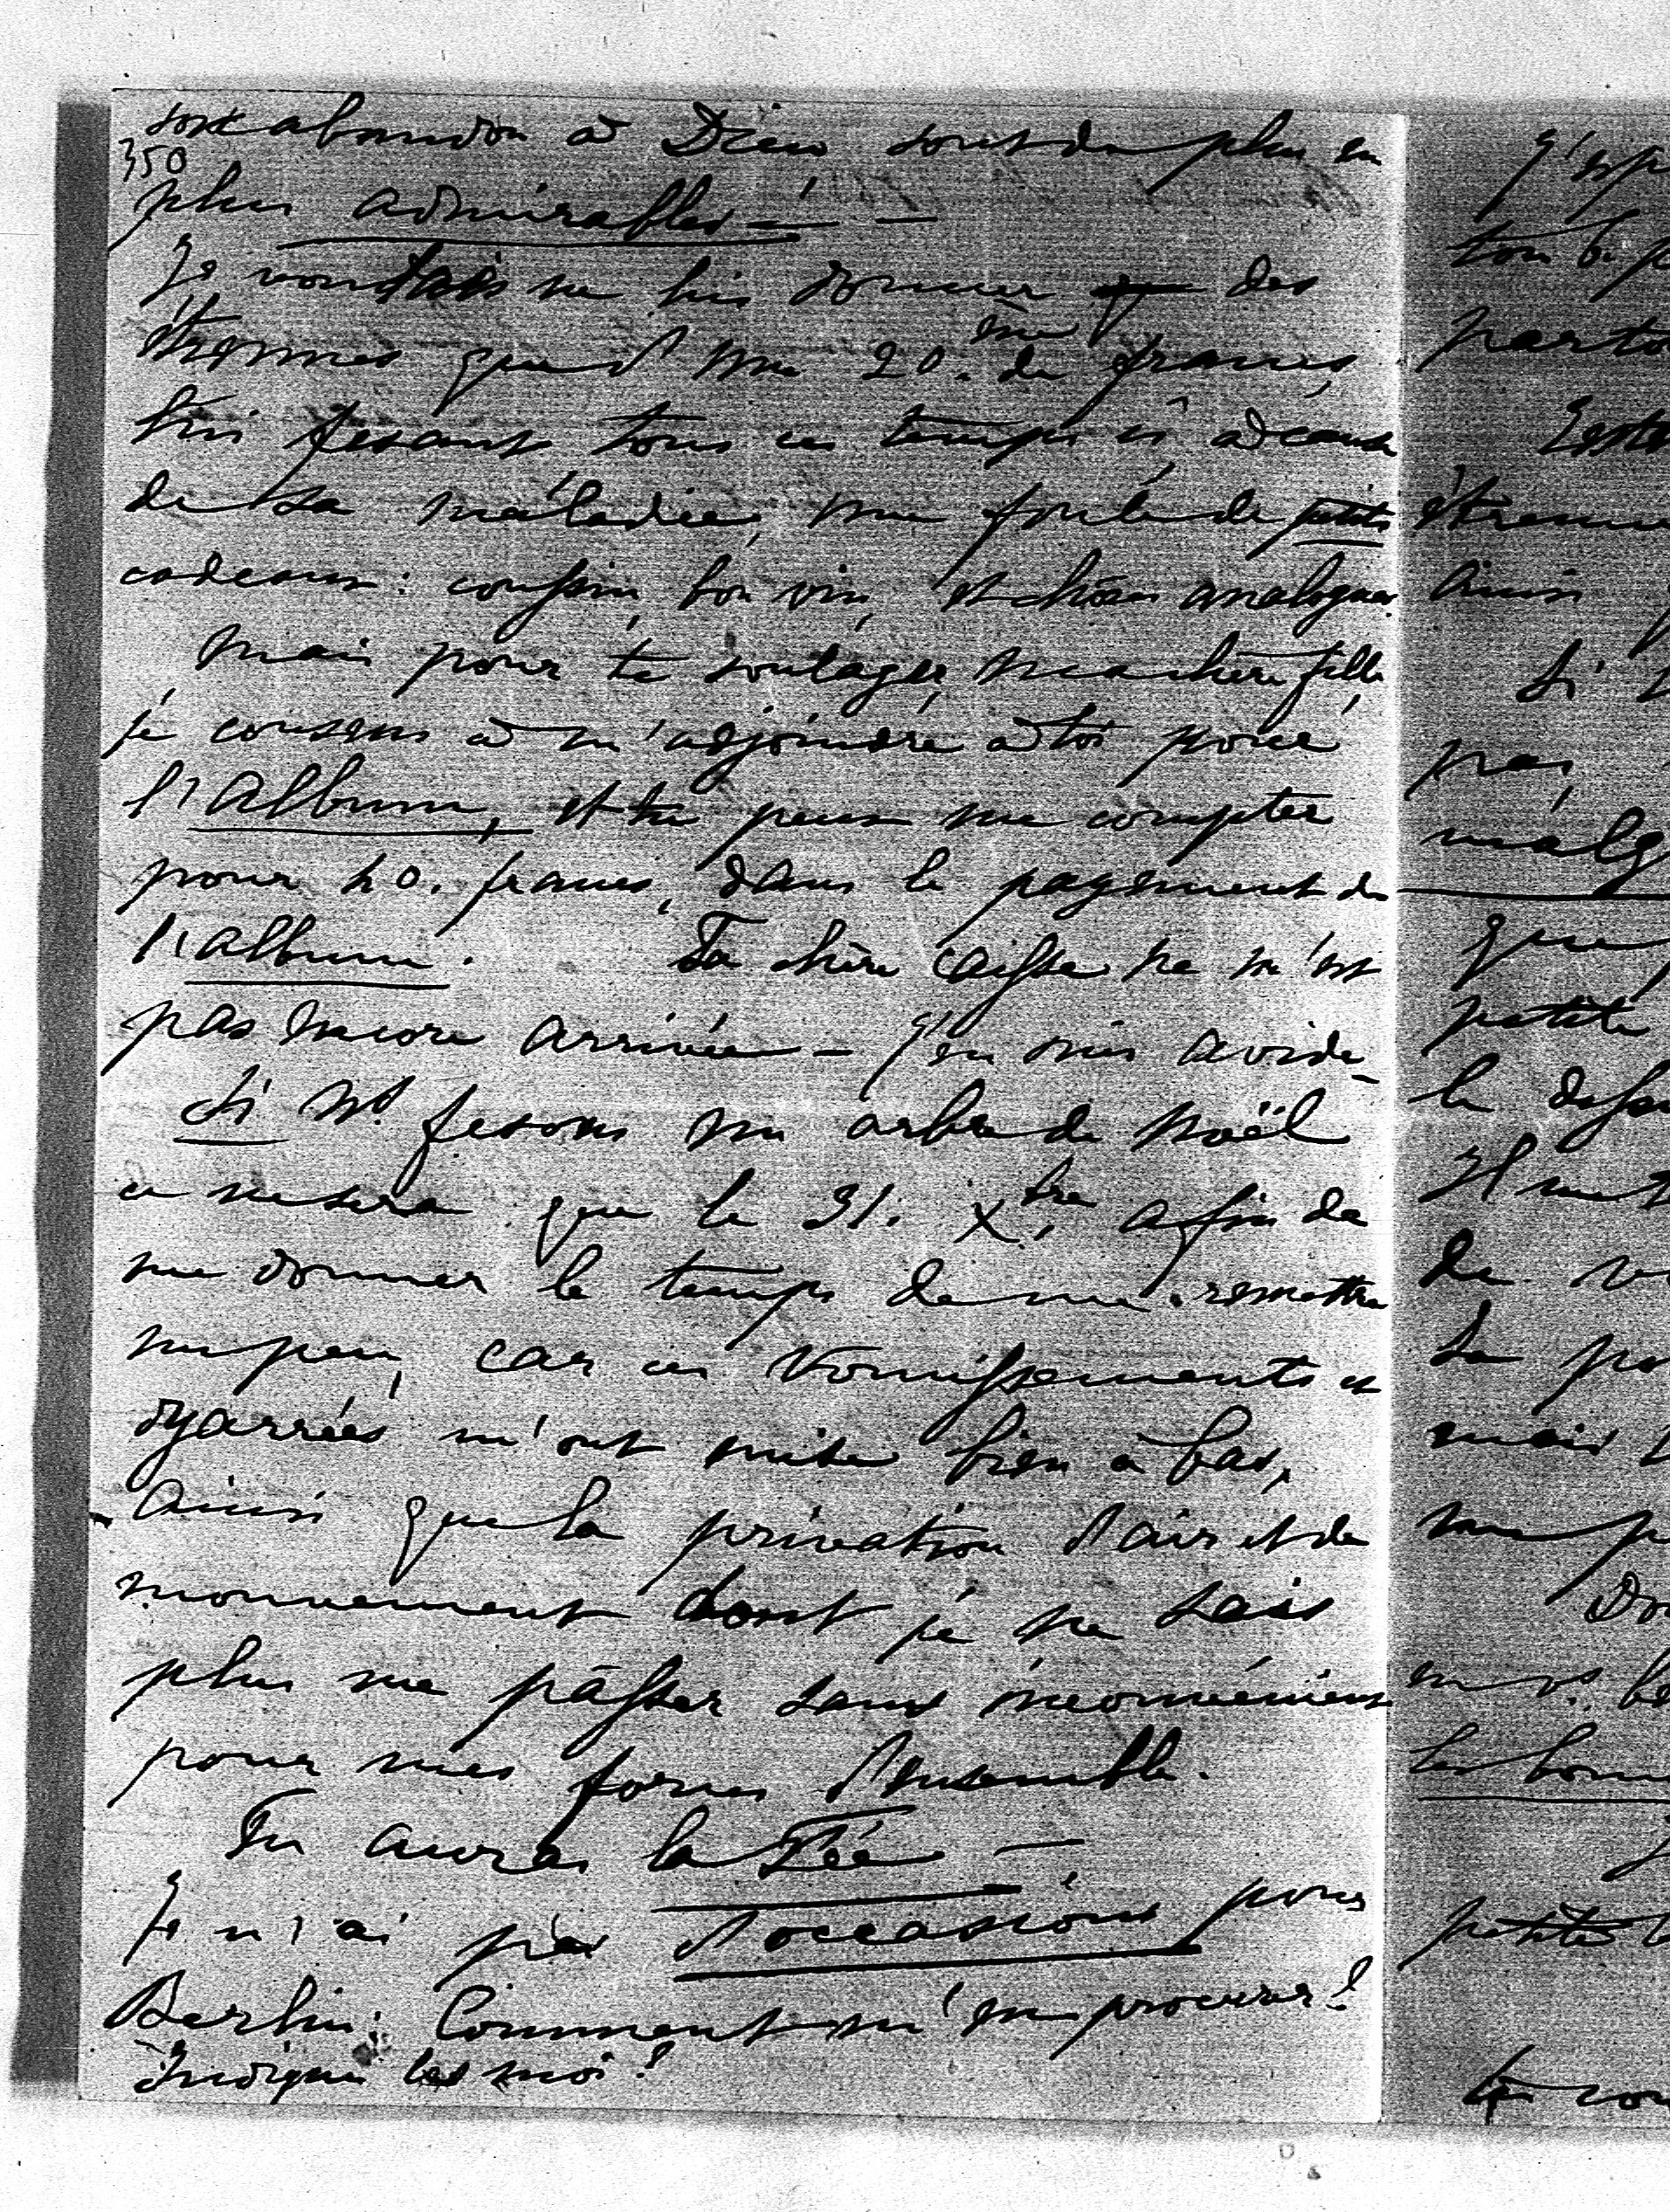 son abandon à Dieu sont de plus en
350
plus admirables — —
Je voudrais ne lui donner des
étrennes que d'une 20.ne de francs,
lui fesant tous ces temps ci à cause
de sa maladie, une foule de petits
cadeaux: coussin, bon vin, et choses analogues.
Mais pour te soulager, ma chère fille,
je consens à m'adjoindre à toi pour
l'album, et tu peux me compter
pour 40. francs, dans le payement de
l'album. Ta chère caisse ne m'est
pas encore arrivée — j'en suis avide —
Si ns. fesons un arbre de Noël
ce ne sera que le 31. Xbre afin de
me donner le temps de me remettre
un peu, car ces vomissements et
dyarrées m'ont mise bien à bas,
Ainsi que la privation d'air et de
mouvement dont je ne sais
plus me passer sans inconvénient
pour mes forces d'ensemble.
Tu auras la Fée —
Je n'ai pas d'occasions pour
Berlin. Comment m'en procurer?
Indique les moi!
étrennes
ainsi
Si
pas
malg
que
petite
le
Il
de
mais
petite